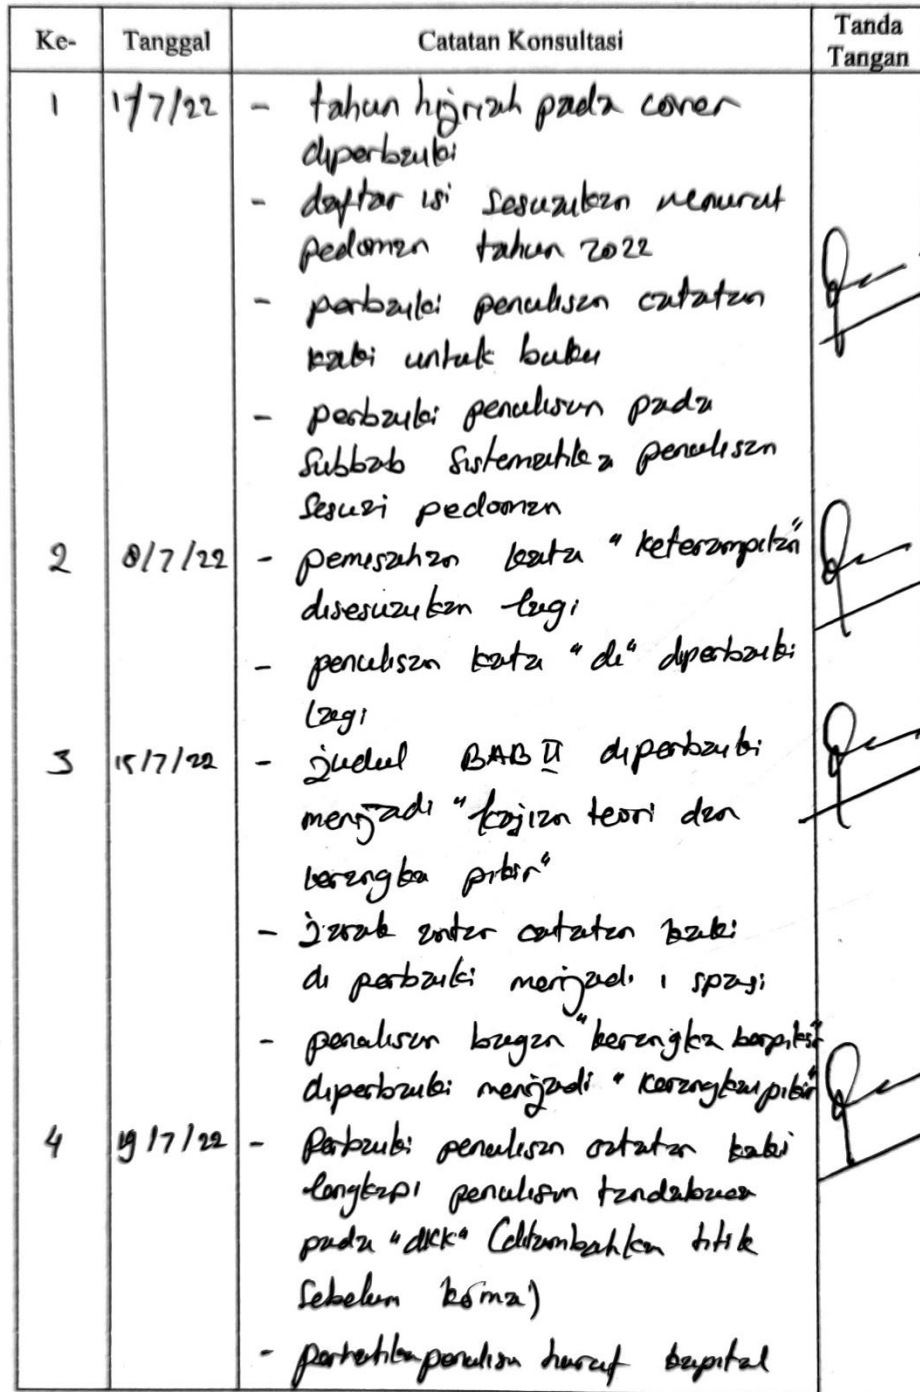 Ke- Tanggal Catatan Konsultasi Tanda Tangan
1 1/7/22 - tahun hijriah pada cover
diperbaiki
- daftar isi sesuaikan menurut
pedoman tahun 2022
- perbaiki penulisan catatan
kaki untuk buku
- perbaiki penulisan pada
subbab sistematika penulisan
sesuai pedoman
2 8/7/22 - pemisahan kata "keterampilan"
disesuaikan lagi
- penulisan kata "di" diperbaiki
lagi
3 15/7/22 - judul BAB II diperbaiki
menjadi "kajian teori dan
kerangka pikir"
- jarak antar catatan kaki
di perbaiki menjadi 1 spasi
- penulisan bagan "kerangka berpikir"
diperbaiki menjadi "kerangka pikir"
4 19/7/22 - Perbaiki penulisan catatan kaki
lengkapi penulisan tandabaca
pada "dkk" (ditambahkan titik
sebelum koma)
- perhatikan penulisan huruf kapital